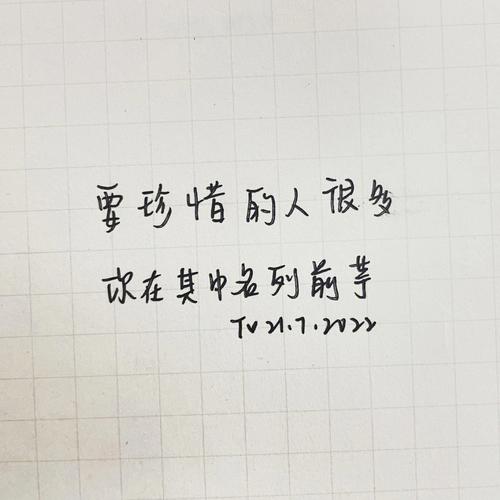 要珍惜的人很多
你在其中名列前茅
TV 21.7.2022